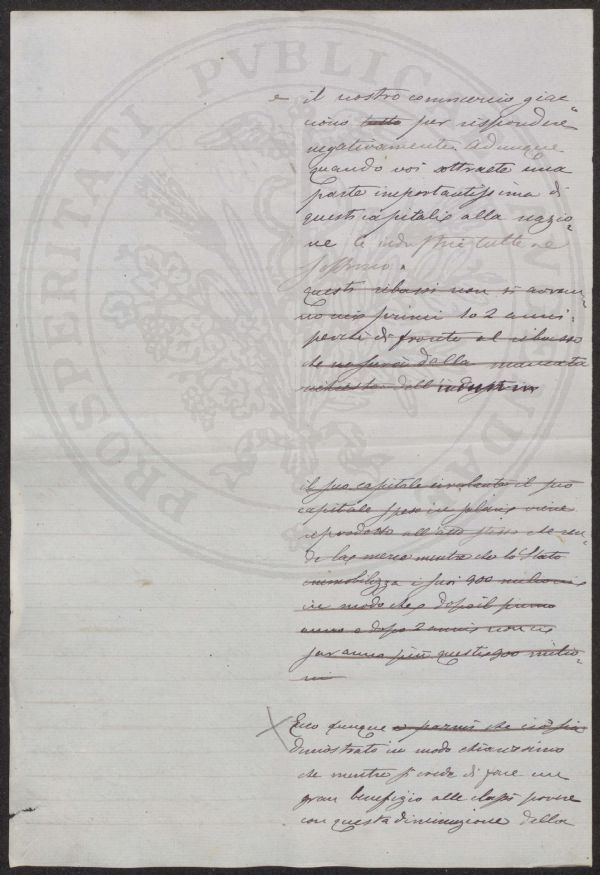 PROSPERITATI PVBLICAE AVGENDAE
e il nostro commercio giac
tutto per rispondere
negativamente. Adunque
quando voi sottraete una
parte importantissima di
questi capitali alla nazio=
ne le industrie tutte ne
soffrono.
questi ribassi non si avran=
no nei primi 1 o 2 anni
perchè di fronte al ribasso
che ne sarà della mancata
richiesta dell'industria
il suo capitale circolante il suo
capitale speso in salari viene
riprodotto all'atto stesso che ven=
de la merce mentre che lo Stato
immobilizza i suoi 900 milioni
in modo che dopo il primo
anno o dopo 2 anni non vi
saranno più questi 900 milio=
ni
Ecco dunque e parmi che ciò sia
dimostrato in modo chiarissimo
che mentre si crede di fare un
gran benefizio alle classi povere
con questa diminuzione della